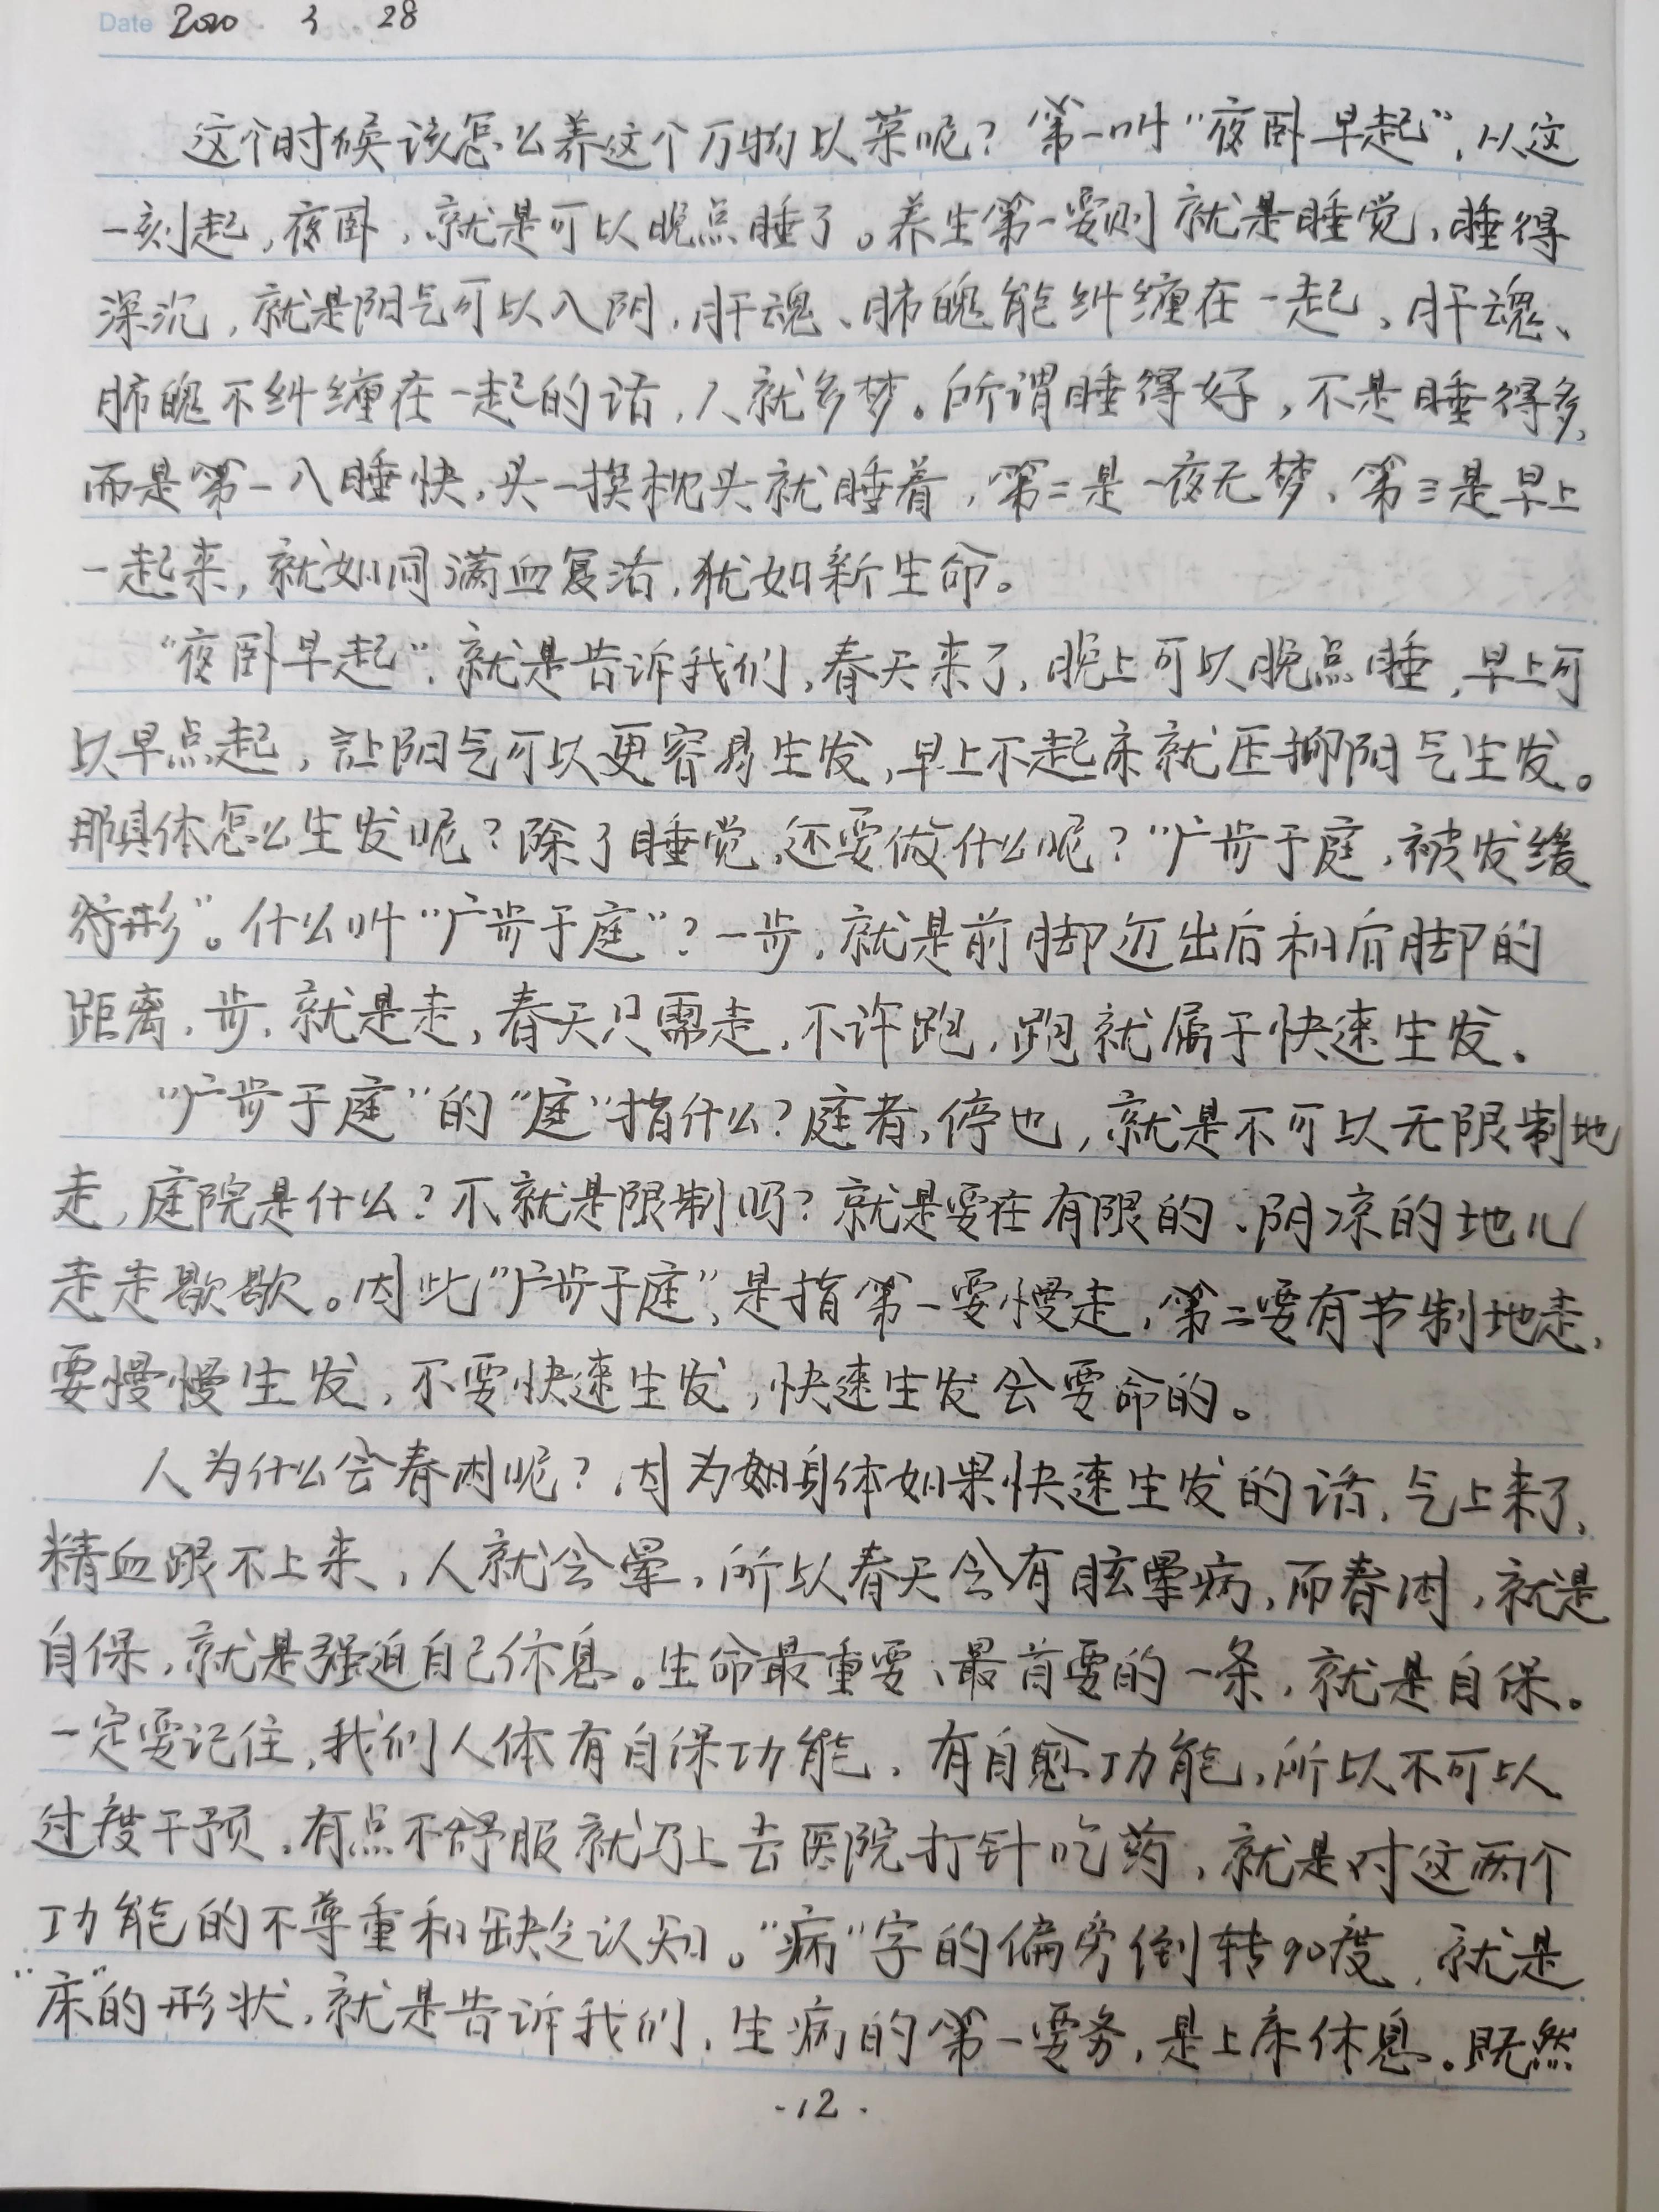 Date 2020 . 3 . 28
这个时候该怎么养这个万物以荣呢？第一叫“夜卧早起”，从这
一刻起，夜卧，就是可以晚点睡了。养生第一要则就是睡觉，睡得
深沉，就是阳气可以入阴，肝魂、肺魄能纠缠在一起，肝魂、
肺魄不纠缠在一起的话，人就多梦。所谓睡得好，不是睡得多，
而是第一入睡快，头一挨枕头就睡着，第二是一夜无梦，第三是早上
一起来，就如同满血复活，犹如新生命。
“夜卧早起”，就是告诉我们，春天来了，晚上可以晚点睡，早上可
以早点起，让阳气可以更容易生发，早上不起床就压抑阳气生发。
那具体怎么生发呢？除了睡觉，还要做什么呢？“广步于庭，被发缓
形”。什么叫“广步于庭”？一步，就是前脚迈出后和后脚的
距离，步，就是走，春天只需走，不许跑，跑就属于快速生发。
“广步于庭”的“庭”指什么？庭者，停也，就是不可以无限制地
走，庭院是什么？不就是限制吗？就是要在有限的、阴凉的地儿
走走歇歇。因此“广步于庭”，是指第一要慢走，第二要有节制地走，
要慢慢生发，不要快速生发，快速生发会要命的。
人为什么会春困呢？因为身体如果快速生发的话，气上来了，
精血跟不上来，人就会晕，所以春天会有眩晕病，而春困，就是
自保，就是强迫自己休息。生命最重要、最首要的一条，就是自保。
一定要记住，我们人体有自保功能，有自愈功能，所以不可以
过度干预，有点不舒服就马上去医院打针吃药，就是对这两个
功能的不尊重和缺乏认知。“病”字的偏旁倒转90度，就是
“床”的形状，就是告诉我们，生病的第一要务，是上床休息。既然
-12-